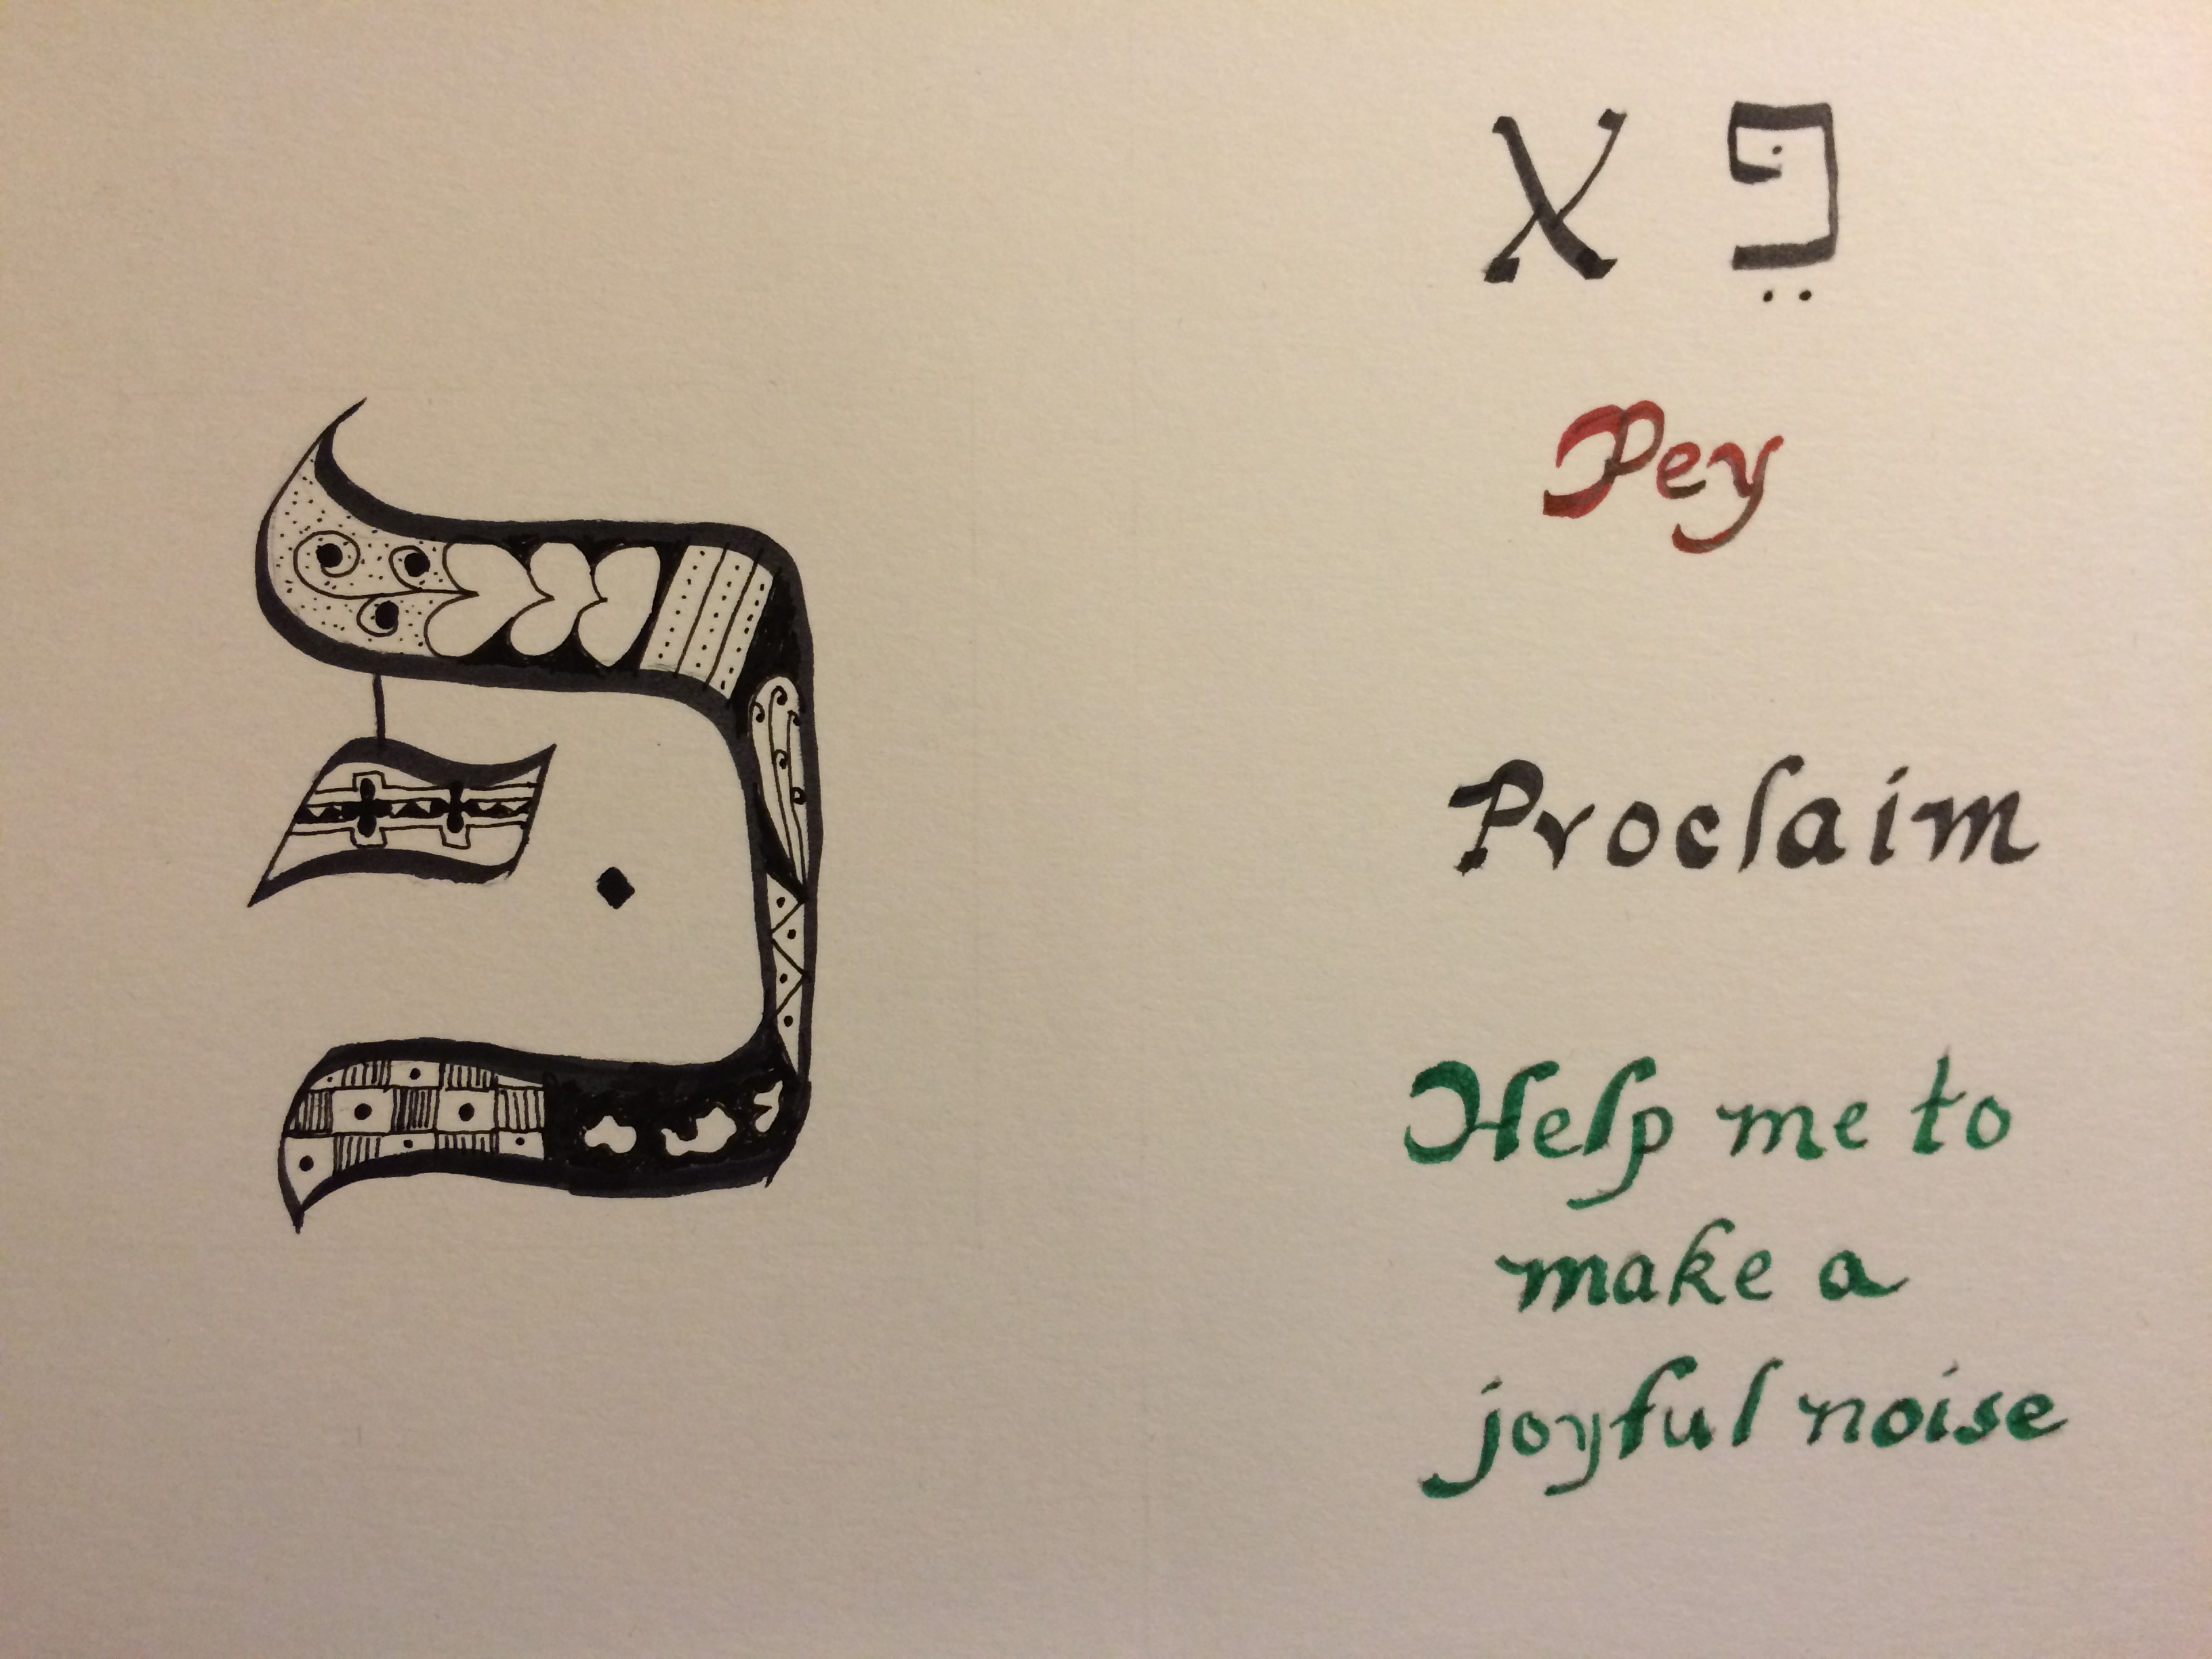 פּ
פֵּ א
Pey
Proclaim
Help me to
make a
joyful noise